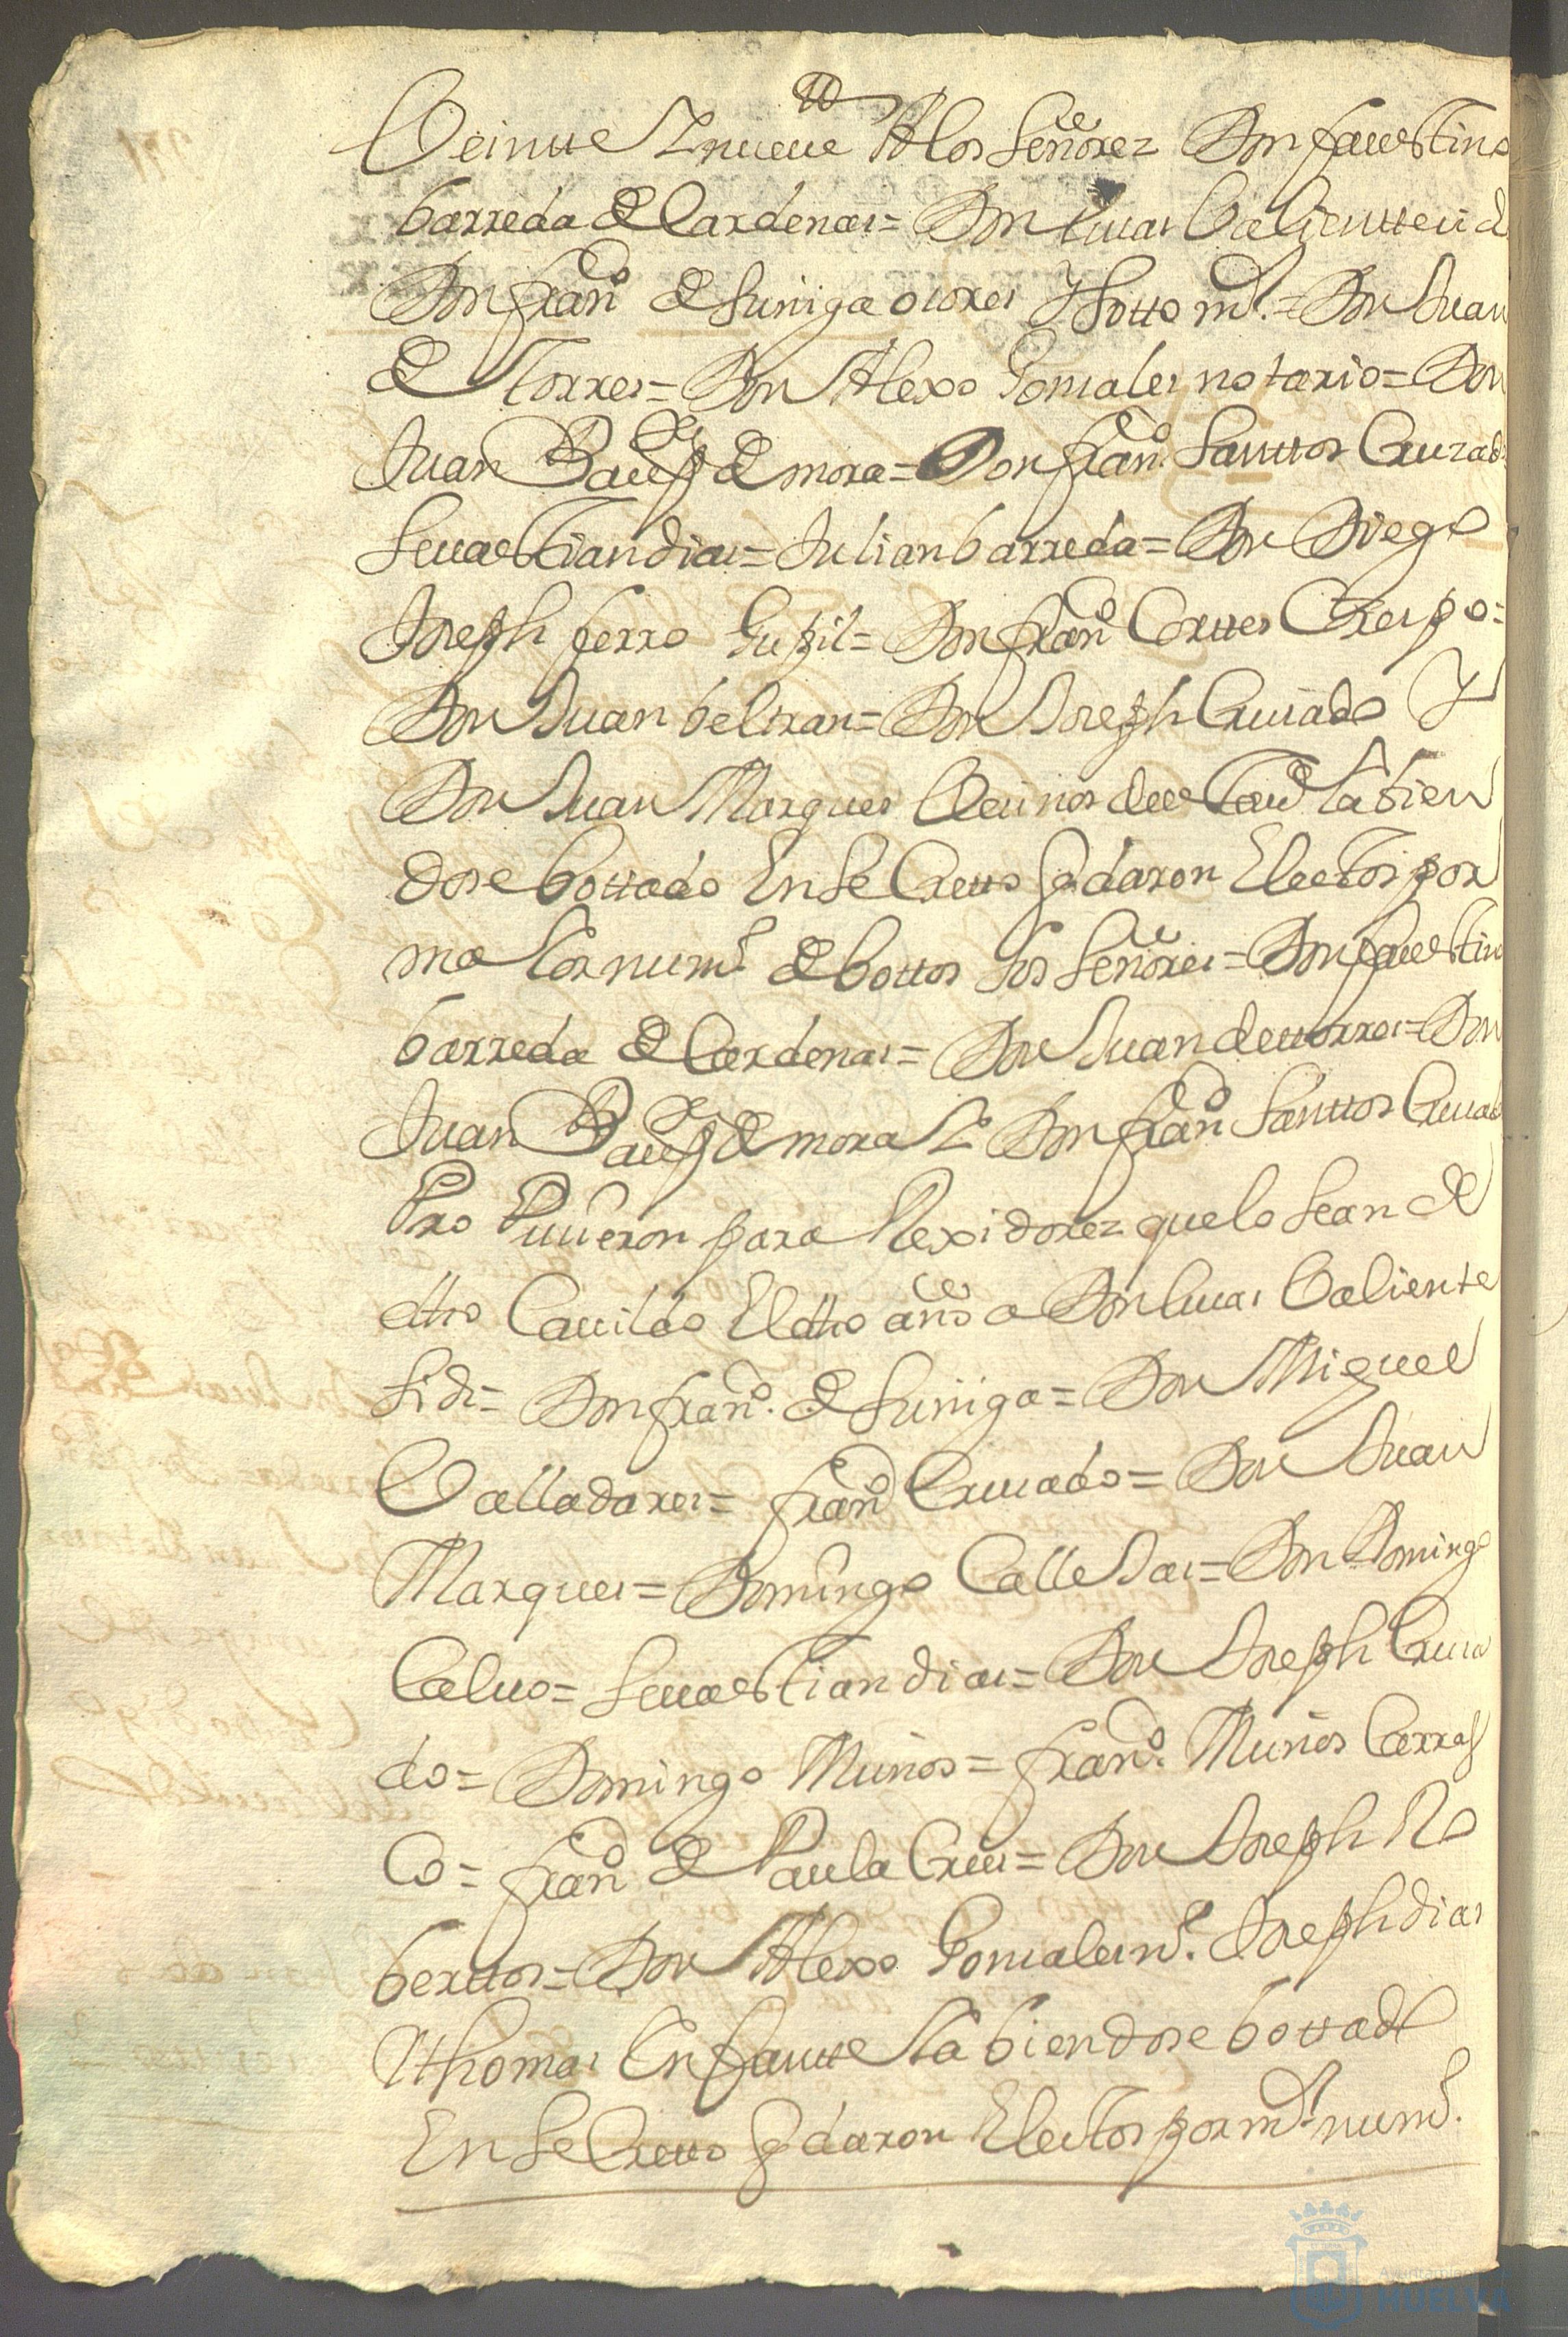 Veintte Y nueue A los Señores Don faustino
barreda de Cardenas = Don lucas Valiente sid
Don fran.co de suniga osores Y sotto m.r = Don Juan
de Torres = Don Alexo Gonsales notario = Don
Juan Baup.ta de mora = Don fran.co Santtos Cruzado
Seuastian dias = Julian barreda = Don Diego
Joseph ferro Gupil = Don fran.co Corttes Crespo =
Don Juan beltran = Don Joseph Crusado Y
Don Juan Marques Vecinos de esta V.a Y abien
dose bottado En Se Cretto q.daron Electos por
ma Ior num.o de bottos los Señores = Don faustino
barreda de Cardenas = Don Juan de ttorres = Don
Juan Baup.ta de mora Y Don fran.co Santtos Crusado
Pro Puuieron para Rexidorez que lo sean de
dho Cauildo El dho año a Don lucas Valiente
sid = Don fran.co de suniga = Don Miguel
Valladares = fran.co Crusado = Don Juan
Marques = Domingo Calle Jas = Don Domingo
Caluo = Seuastian dias = Don Joseph Crusa
do = Domingo Muños = fran.co Muños Carras
Co = fran.co de Paula Crus = Don Joseph Ro
berttos = Don Alexo Gonsales n.o Joseph dias
Y thomas Enfantte Y abiendose bottado
En Se Cretto q.daron Electos por m.r num.o
Ayuntamiento
HUELVA